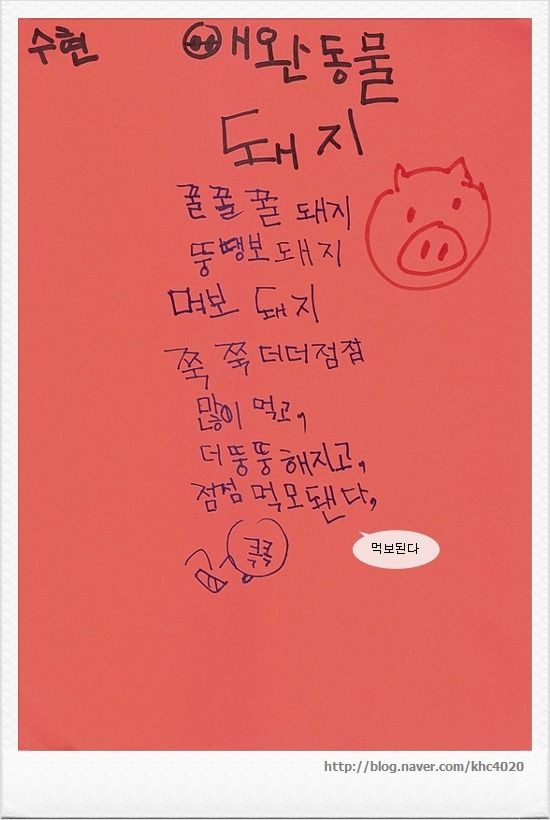 수현
애완동물
돼지
꿀꿀꿀 돼지
뚱땡보돼지
며보 돼지
쭉쭉더더점점
많이 먹고,
더뚱뚱해지고,
점점먹모됀다,
먹보된다
콕콕
http://blog.naver.com/khc4020